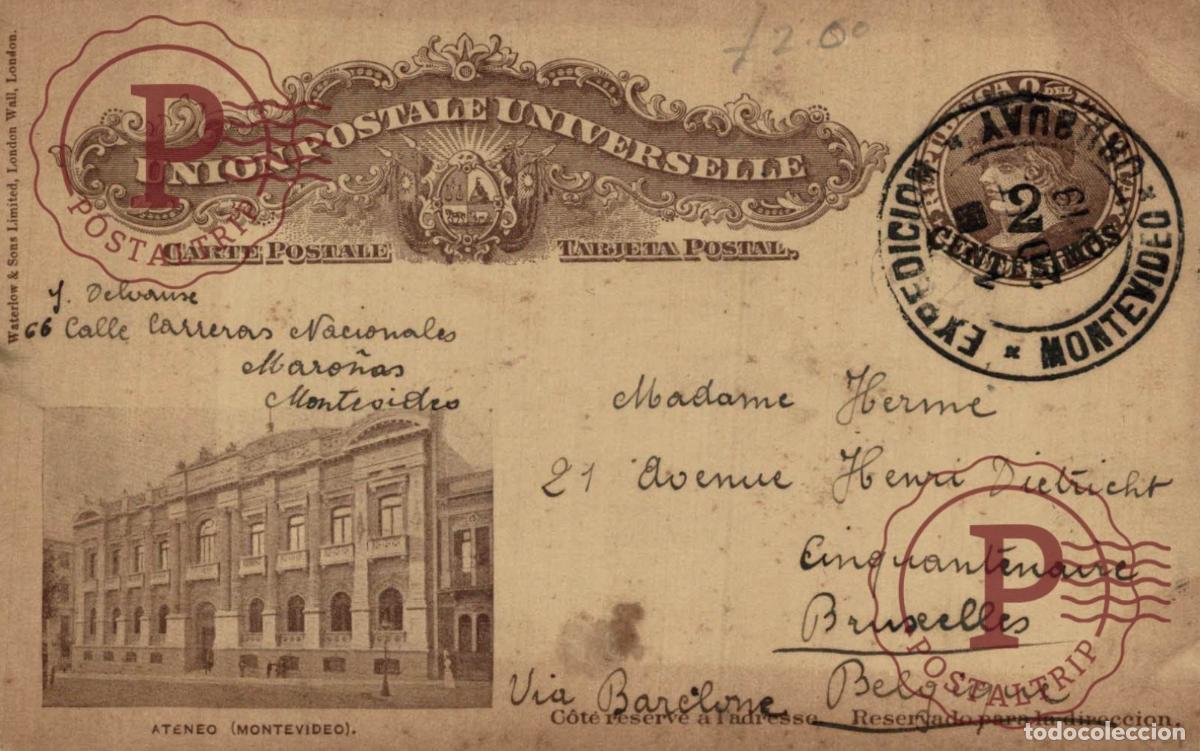 £2.00
Waterlow & Sons Limited, London Wall, London.
UNION POSTALE UNIVERSELLE
CARTE POSTALE TARJETA POSTAL.
2
CENTESIMOS
EXPEDICION
URUGUAY
MONTEVIDEO
P
POSTALTRIP
66 Calle Carreras Nacionales
Maroñas
Montevideo
Madame Herme
21 Avenue Henri Dietricht
Cinquantenaire
Bruxelles
Belgique
Via Barcelone
ATENEO (MONTEVIDEO).
Côté réservé à l'adresse Reservado para la direccion.
P
POSTALTRIP
todocoleccion